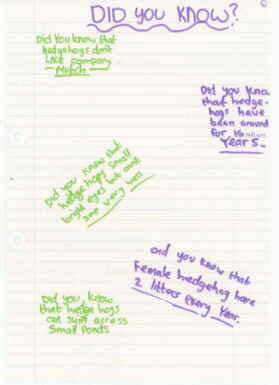 DID YOU KNOW?
Did You know that
hedgehogs don't
LIKE company
Much
Did you know
that hedge-
hogs have
been around
for million
Years.
Did you know that
hedge hogs small
bright eyes but cant
see very well
Did you know that
Female hedgehog have
2 litters every Year.
Did you know
that hedge hogs
can swim across
Small Ponds